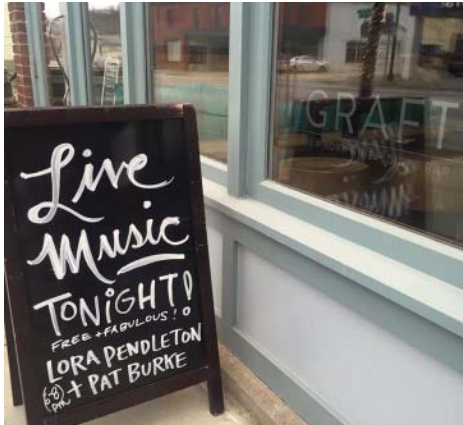 Live
Music
TONiGHT!
FREE + FABULOUS!
LORA PENDLETON
6-8 PM + PAT BURKE
GRAFT